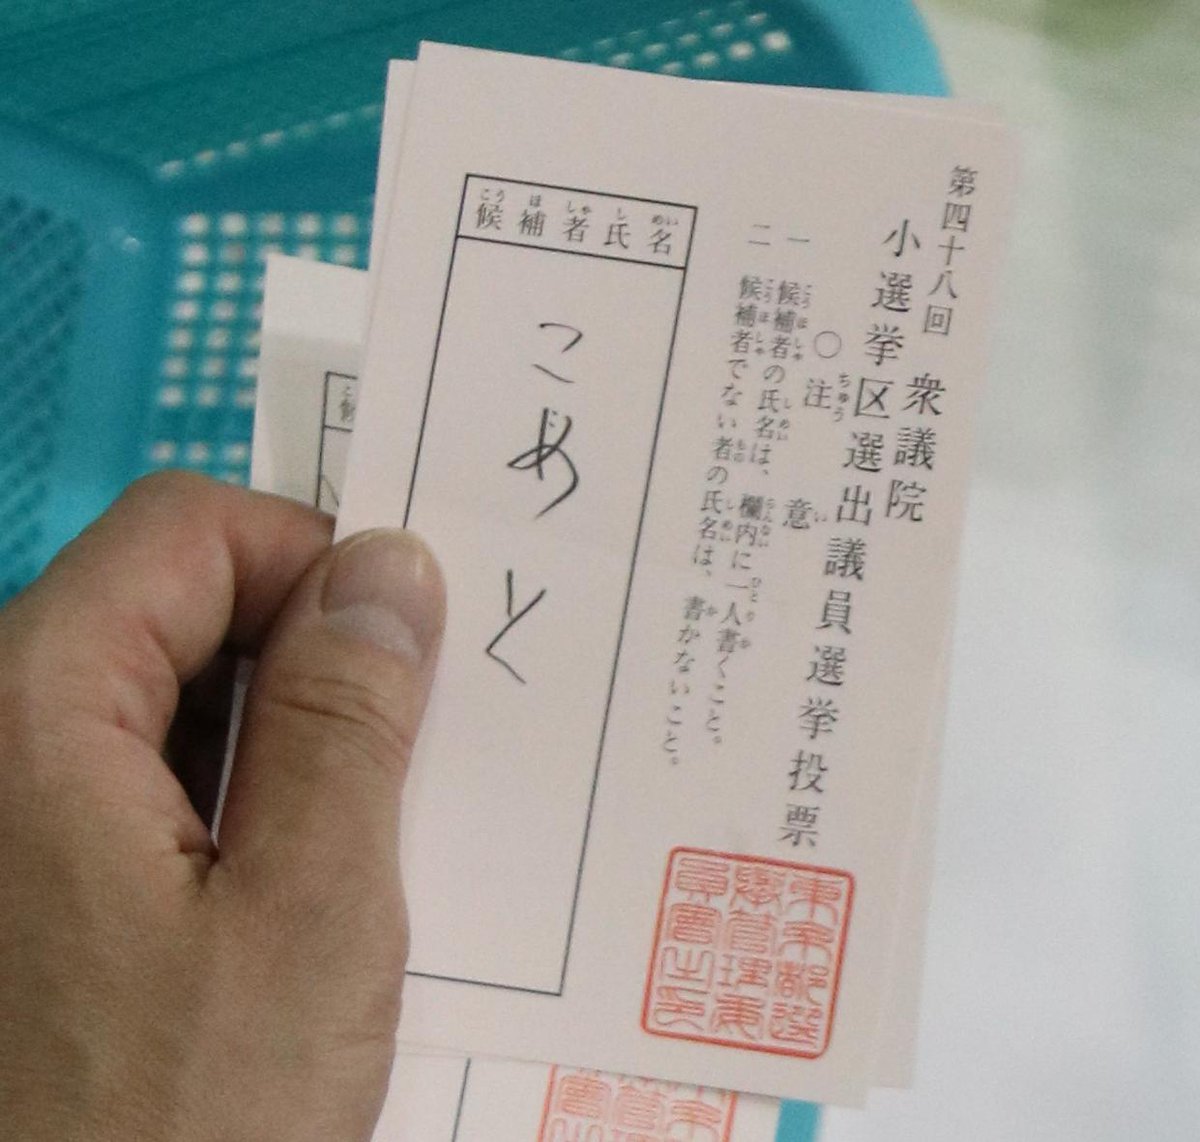 第四十八回 衆議院
小選挙区選出議員選挙投票
○注意
一 候補者の氏名は、欄内に一人書くこと。
二 候補者でない者の氏名は、書かないこと。
候補者氏名
こめと
東京都選
擧管理委
員會之印